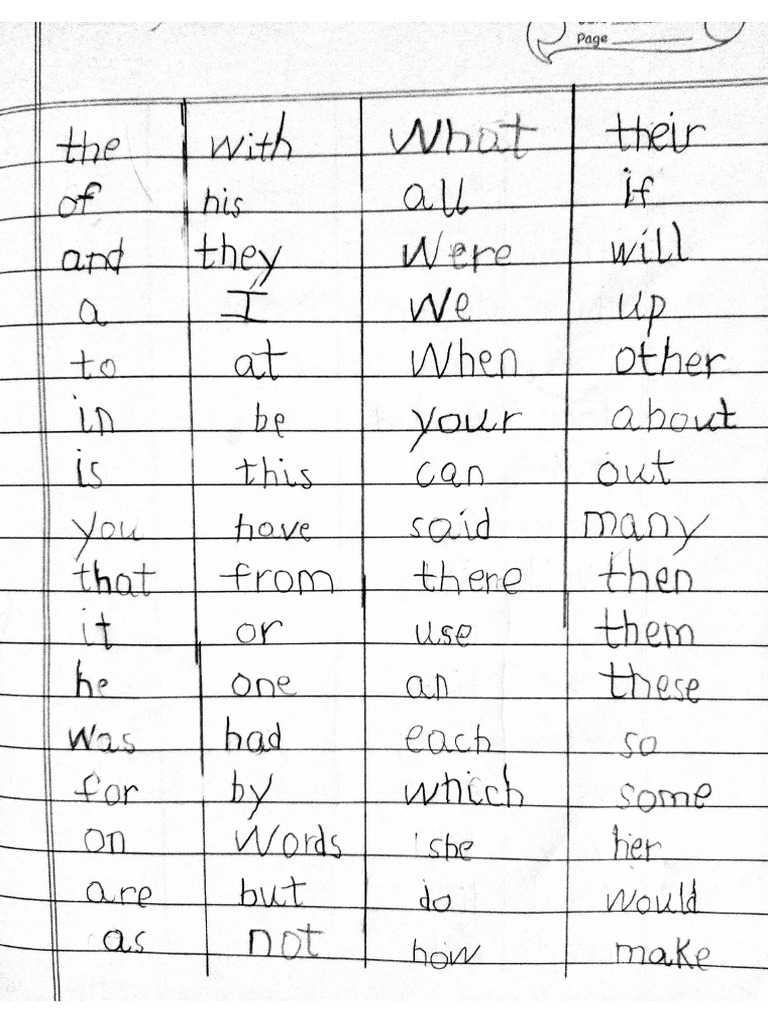 Page
the with What their
of his all if
and they Were will
a I We up
to at When other
in be your about
is this can out
you have said many
that from there then
it or use them
he one an these
was had each so
for by which some
on Words she her
are but do would
as not how make